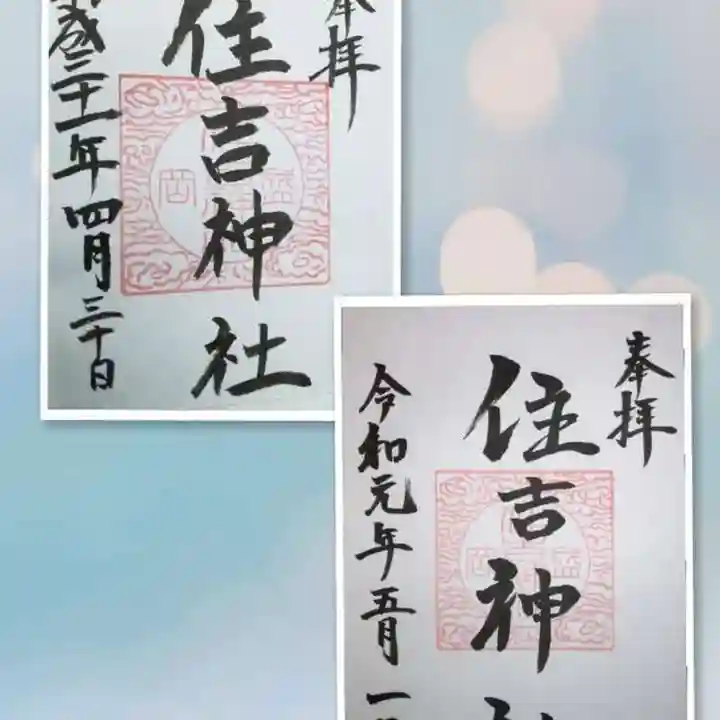 奉拝
住吉神社
平成三十一年四月三十日
奉拝
住吉神社
令和元年五月一日